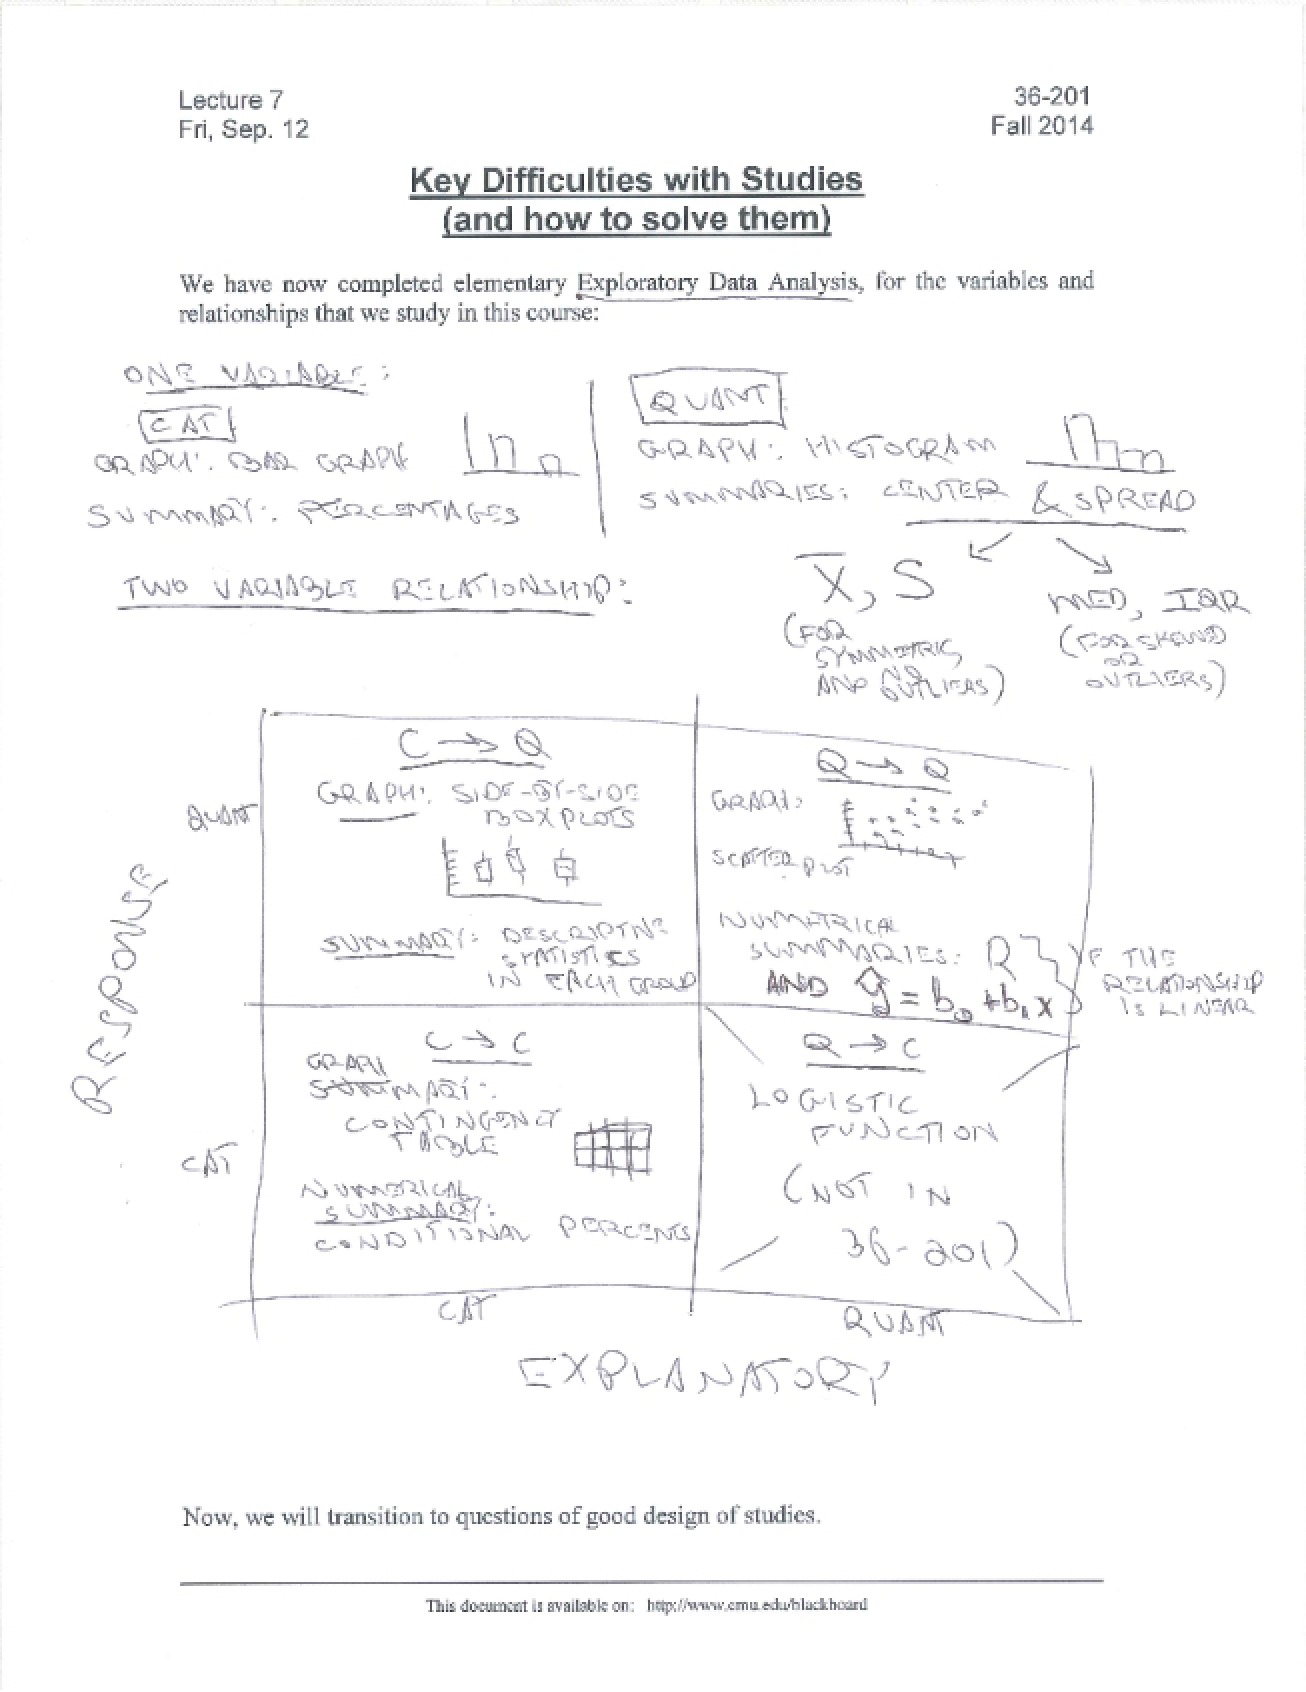 Lecture 7
36-201
Fri, Sep. 12
Fall 2014
Key Difficulties with Studies
(and how to solve them)
We have now completed elementary Exploratory Data Analysis, for the variables and
relationships that we study in this course:
ONE VARIABLE:
CAT
GRAPH: BAR GRAPH
SUMMARY: PERCENTAGES
QUANT
GRAPH: HISTOGRAM
SUMMARIES: CENTER & SPREAD
X̄, S
(FOR
SYMMETRIC
AND NO
OUTLIERS)
MED, IQR
(FOR SKEWED
OR
OUTLIERS)
TWO VARIABLE RELATIONSHIP:
RESPONSE
QUANT
C → Q
GRAPH: SIDE-BY-SIDE
BOXPLOTS
SUMMARY: DESCRIPTIVE
STATISTICS
IN EACH GROUP
Q → Q
GRAPH:
SCATTERPLOT
NUMERICAL
SUMMARIES: R
AND ŷ = b₀ + b₁x
IF THE
RELATIONSHIP
IS LINEAR
CAT
C → C
GRAPH
SUMMARY:
CONTINGENCY
TABLE
NUMERICAL
SUMMARY:
CONDITIONAL PERCENTS
Q → C
LOGISTIC
FUNCTION
(NOT IN
36-201)
CAT
QUANT
EXPLANATORY
Now, we will transition to questions of good design of studies.
This document is available on: http://www.cmu.edu/blackboard